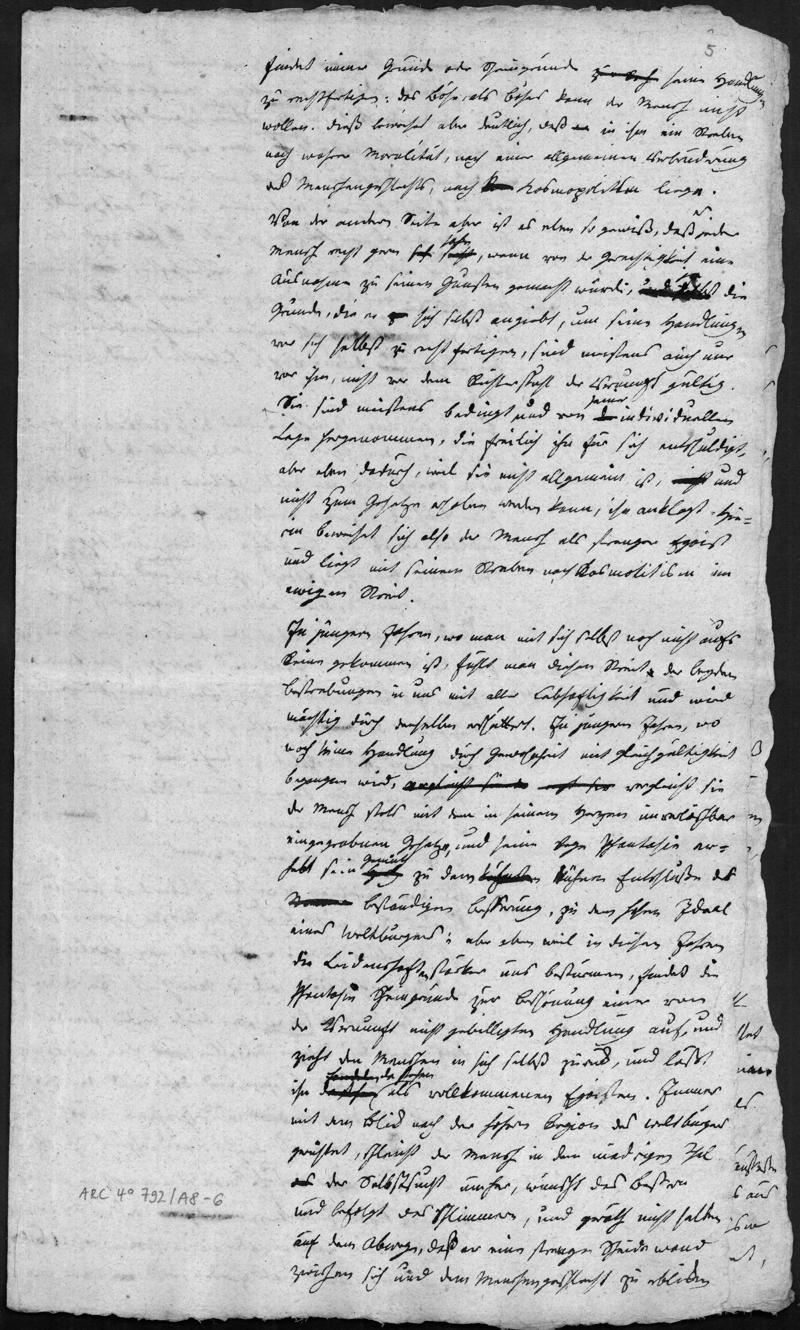 5
findet immer Gründe oder Scheingründe seine Handlungen
zu rechtfertigen: das Böse, als böses kann der Mensch nicht
wollen. dieß beweiset aber deutlich, daß in ihm ein Streben
nach wahrer Moralität, nach einer allgemeinen Verbrüderung
des Menschengeschlechts, nach Kosmopolitism liege.
Von der andern Seite aber ist es eben so gewiß, daß jeder
Mensch recht gern sehe, wenn von der Gerechtigkeit eine
Ausnahme zu seinen Gunsten gemacht würde, die
Gründe, die er sich selbst angiebt, um seine Handlungen
vor sich selbst zu rechtfertigen, sind meistens auch nur
vor ihm, nicht vor dem Richterstuhl der Vernunft gültig.
Sie sind meistens bedingt und von seiner individuellen
Lage hergenommen, die freilich ihn für sich entschuldigt,
aber eben dadurch, weil sie nicht allgemein ist, und
nicht zum Gesetze erhoben werden kann, ihn anklagt. Hie=
rin beweiset sich also der Mensch als strenger Egoist
und liegt mit seinem Streben nach Kosmolitism im
ewigen Streit.
In jüngern Jahren, wo man mit sich selbst noch nicht aufs
Reine gekommen ist, fühlt man diesen Streit der beyden
Bestrebungen in uns mit aller Lebhaftigkeit und wird
mächtig durch denselben erschüttert. In jüngern Jahren, wo
noch keine Handlung durch Gewohnheit mit Gleichgültigkeit
begangen wird, vergleicht sie
der Mensch stets mit dem in seinem Herzen unverlöschbar
eingegrabnen Gesetze, und seine rege Phantasie er=
hebt sein Gemüth zu dem kühnen Entschluße der
beständigen Besserung, zu dem hohen Ideal
eines Weltbürgers; aber eben weil in diesen Jahren
die Leidenschaften stärker uns bestürmen, findet die
Phantasie Scheingründe zur Beschönung einer von
der Vernunft nicht gebilligten Handlung auf, und
zieht den Menschen in sich selbst zurück, und läßt
ihn da stehen als vollkommenen Egoisten. Immer
mit dem Blick nach der höhern Region des Weltbürgers
gerichtet, schleicht der Mensch in dem niedrigen Thal
der Selbstsucht umher, wünscht das Bessere
und befolgt das Schlimmere, und geräth nicht selten
auf dem Abwege, daß er eine strenge Scheidewand
zwischen sich und dem Menschengeschlecht zu erblicken
ARC 4° 792/A8-6